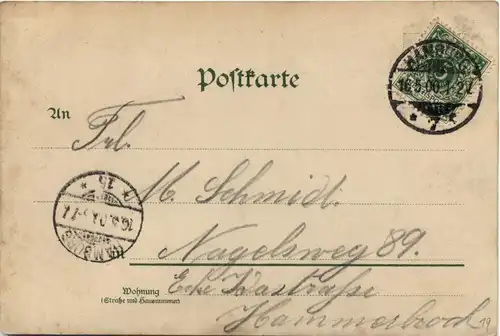 HAMBURG
16.5.00.1-2N
* 7 *
Postkarte
An
Frl.
M. Schmidt.
* 15 *
16.5.00
HAMBURG
Nagelsweg 89.
Wohnung
(Straße und Hausnummer)
Ecke
Hammerbrook